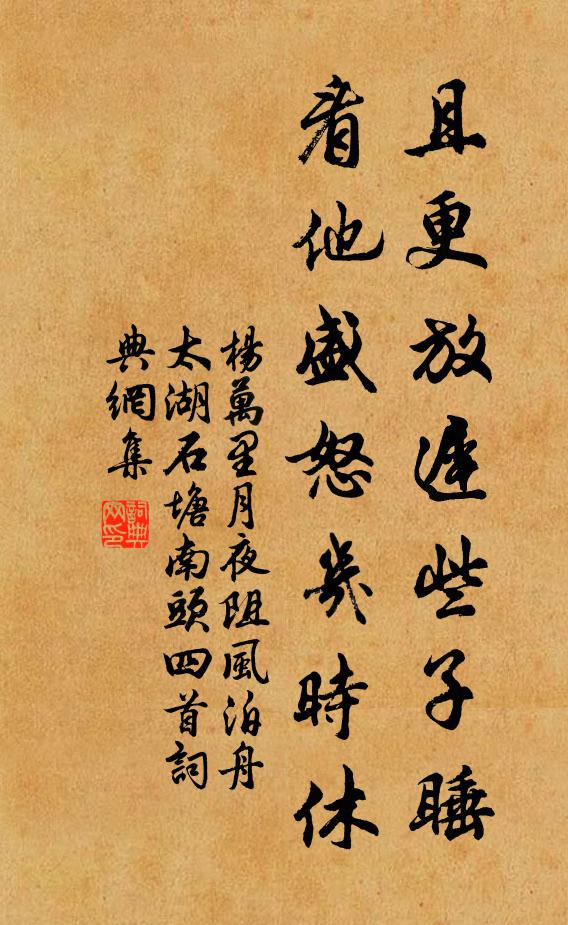 且更放遲些子睡
看他盛怒幾時休
楊萬里月夜阻風泊舟
太湖石塘南頭四首詞
典網集
詞典網印